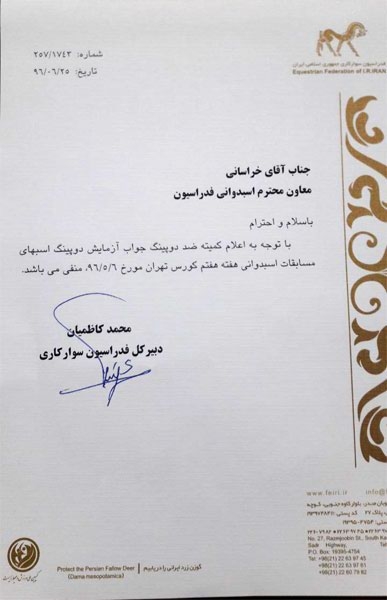 فدراسیون سوارکاری جمهوری اسلامی ایران
Equestrian Federation of I.R.IRAN
شماره: ۲۵۷/۱۷۴۳
تاریخ: ۹۶/۰۶/۲۵
جناب آقای خراسانی
معاون محترم اسبدوانی فدراسیون
باسلام و احترام
با توجه به اعلام کمیته ضد دوپینگ جواب آزمایش دوپینگ اسبهای
مسابقات اسبدوانی هفته هفتم کورس تهران مورخ ۹۶/۵/۶، منفی می باشد.
محمد کاظمیان
دبیرکل فدراسیون سوارکاری
www.feiri.ir
No. 27, Razmjobin St., South Ka
Sadr Highway,
P.O. Box: 19395-4754
Tel: +98(21) 22 63 97 45
+98(21) 22 63 97 61
+98(21) 22 60 79 82
گوزن زرد ایرانی را دریابیم
Protect the Persian Fallow Deer
(Dama mesopotamica)